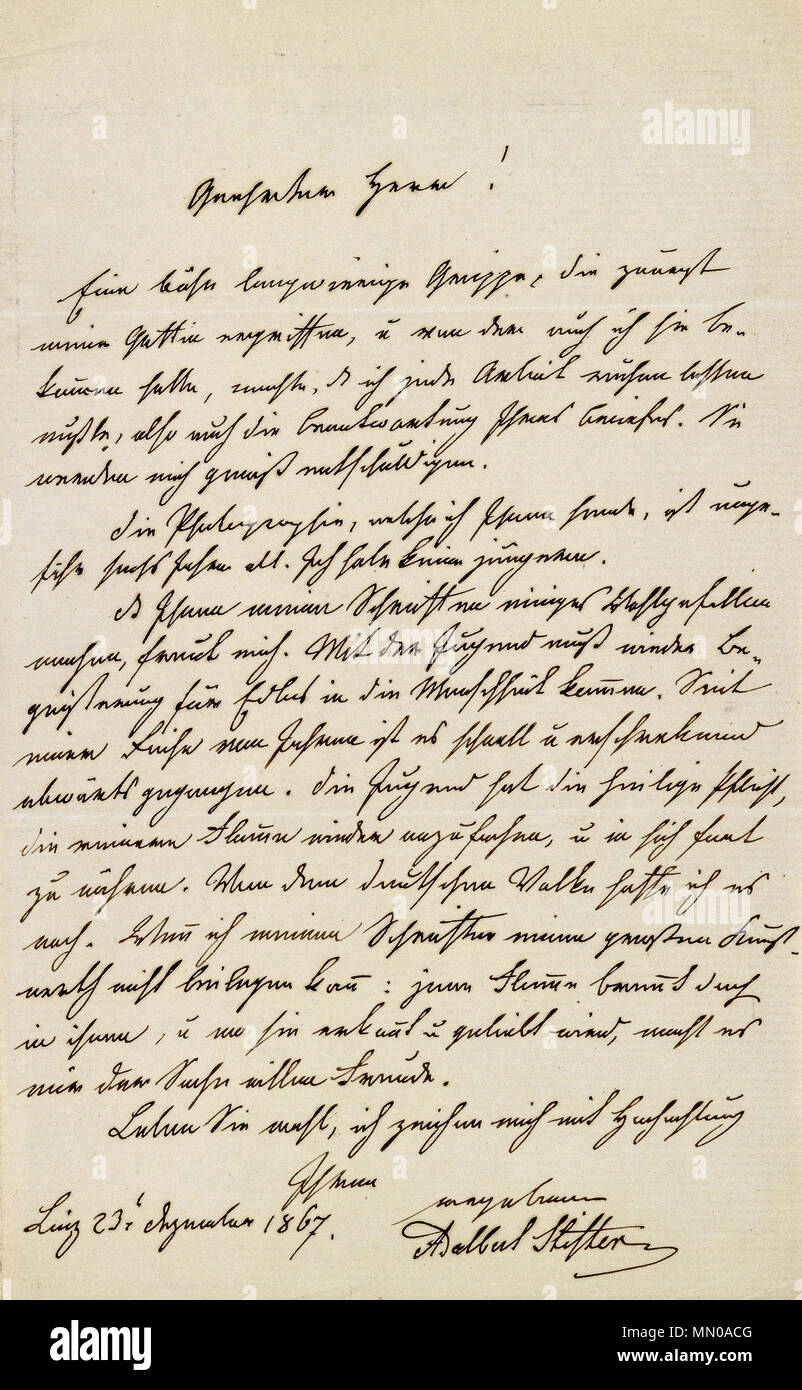 Geehrter Herr!
Eine böse langwierige Grippe, die zuerst
meine Gattin ergriffen, u von der auch ich sie be-
kommen hatte, machte, dß ich jede Arbeit ruhen lassen
mußte, also auch die Beantwortung Ihres Briefes. Sie
werden mich gewiß entschuldigen.
Die Photographie, welche ich Ihnen sende, ist unge-
fähr sechs Jahre alt. Ich habe keine jüngere.
dß Ihnen meine Schriften einiges Wohlgefallen
machen, freut mich. Mit der Jugend muß wieder Be-
geisterung für Edles in die Menschheit kommen. Seit
einer Reihe von Jahren ist es schnell u erschreckend
abwärts gegangen. Die Jugend hat die heilige Pflicht,
die reinere Flamme wieder anzufachen, u in sich fort
zu nähren. Von dem deutschen Volke hoffe ich es
noch. Wenn ich meinen Schriften einen großen Kunst-
werth nicht beilegen kann: jene Flamme brennt doch
in ihnen, u wo sie erkannt u geliebt wird, macht es
mir der Sache willen Freude.
Leben Sie wohl, ich zeichne mich mit Hochachtung
Ihren
ergebenen
Linz 23t Dezember 1867.
Adalbert Stifter
alamy
alamy
alamy
alamy
Image ID: MN0ACG
www.alamy.com